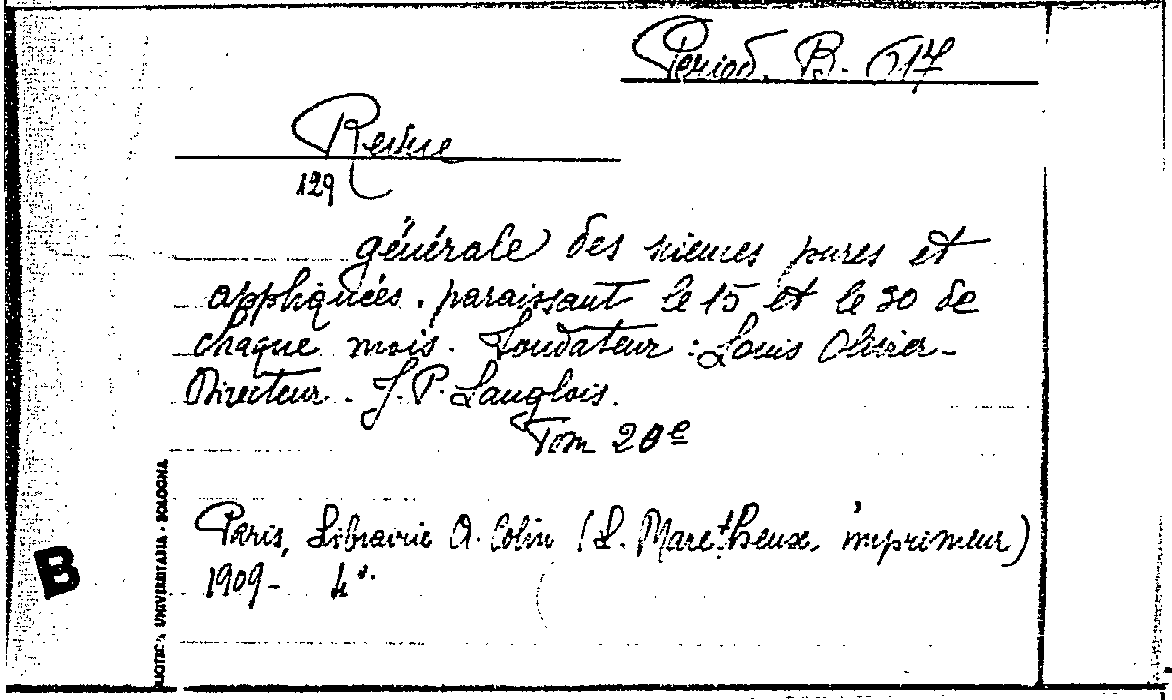 Period. B. 617
Revue
129
générale des sciences pures et
appliquées. paraissant le 15 et le 30 de
chaque mois. Fondateur : Louis Olivier -
Directeur. J. P. Langlois.
Tom 20e
Paris, Librairie A. Colin (L. Maretheux, imprimeur)
1909- 4°.
B
UNIVERSITARIA - BOLOGNA